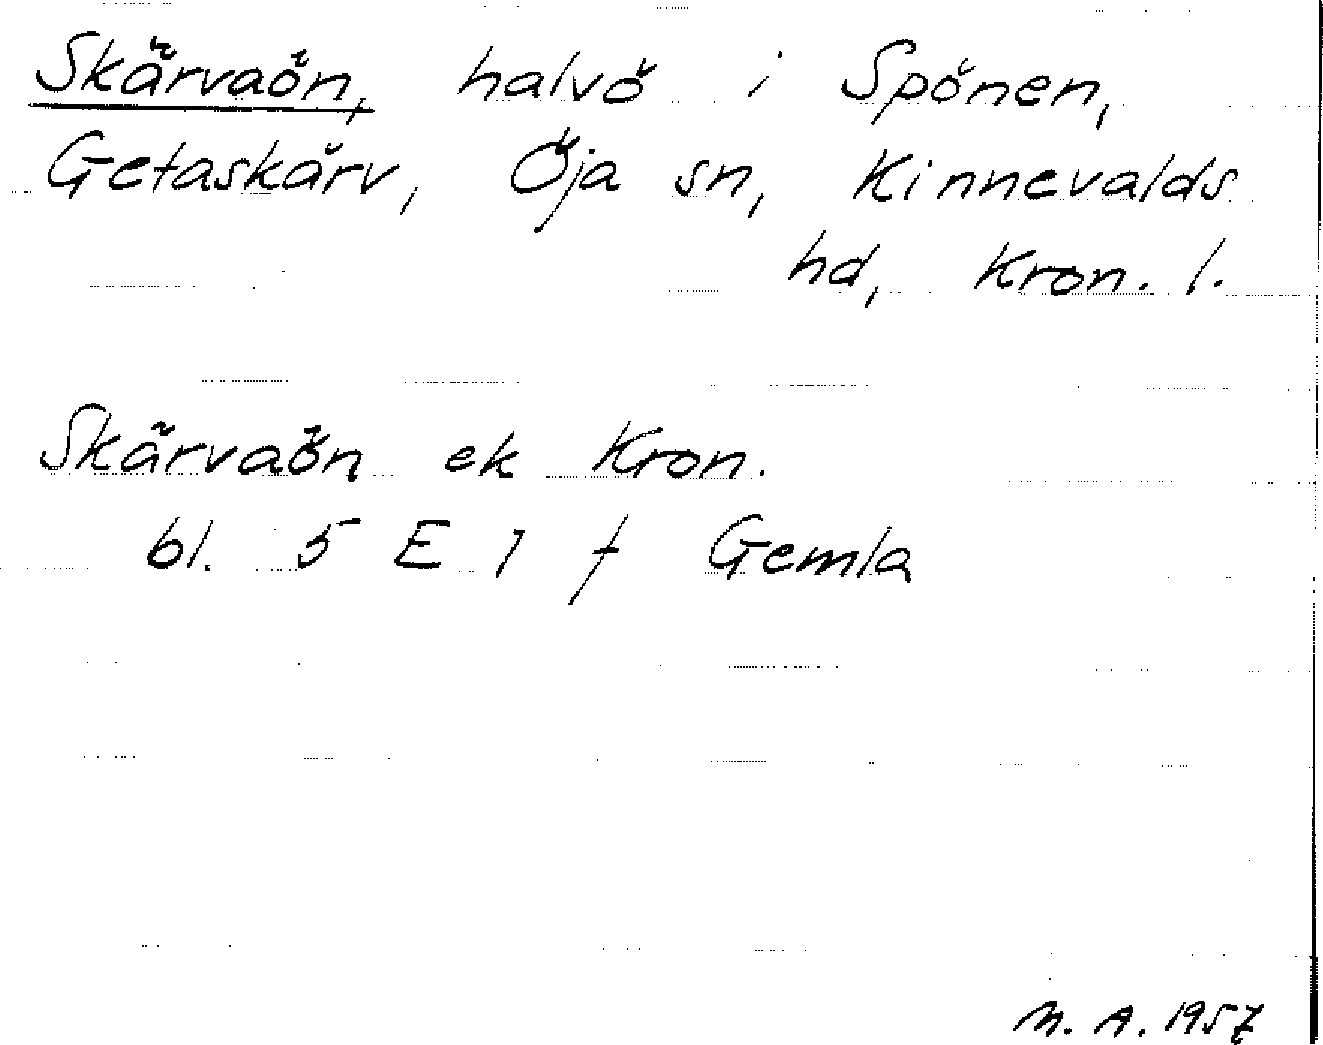 Skärvaön, halvö i Spönen,
Getaskärv, Öja sn, Kinnevalds
hd, Kron. l.
Skärvaön ek Kron.
bl. 5 E 1 f Gemla
M. A. 1957